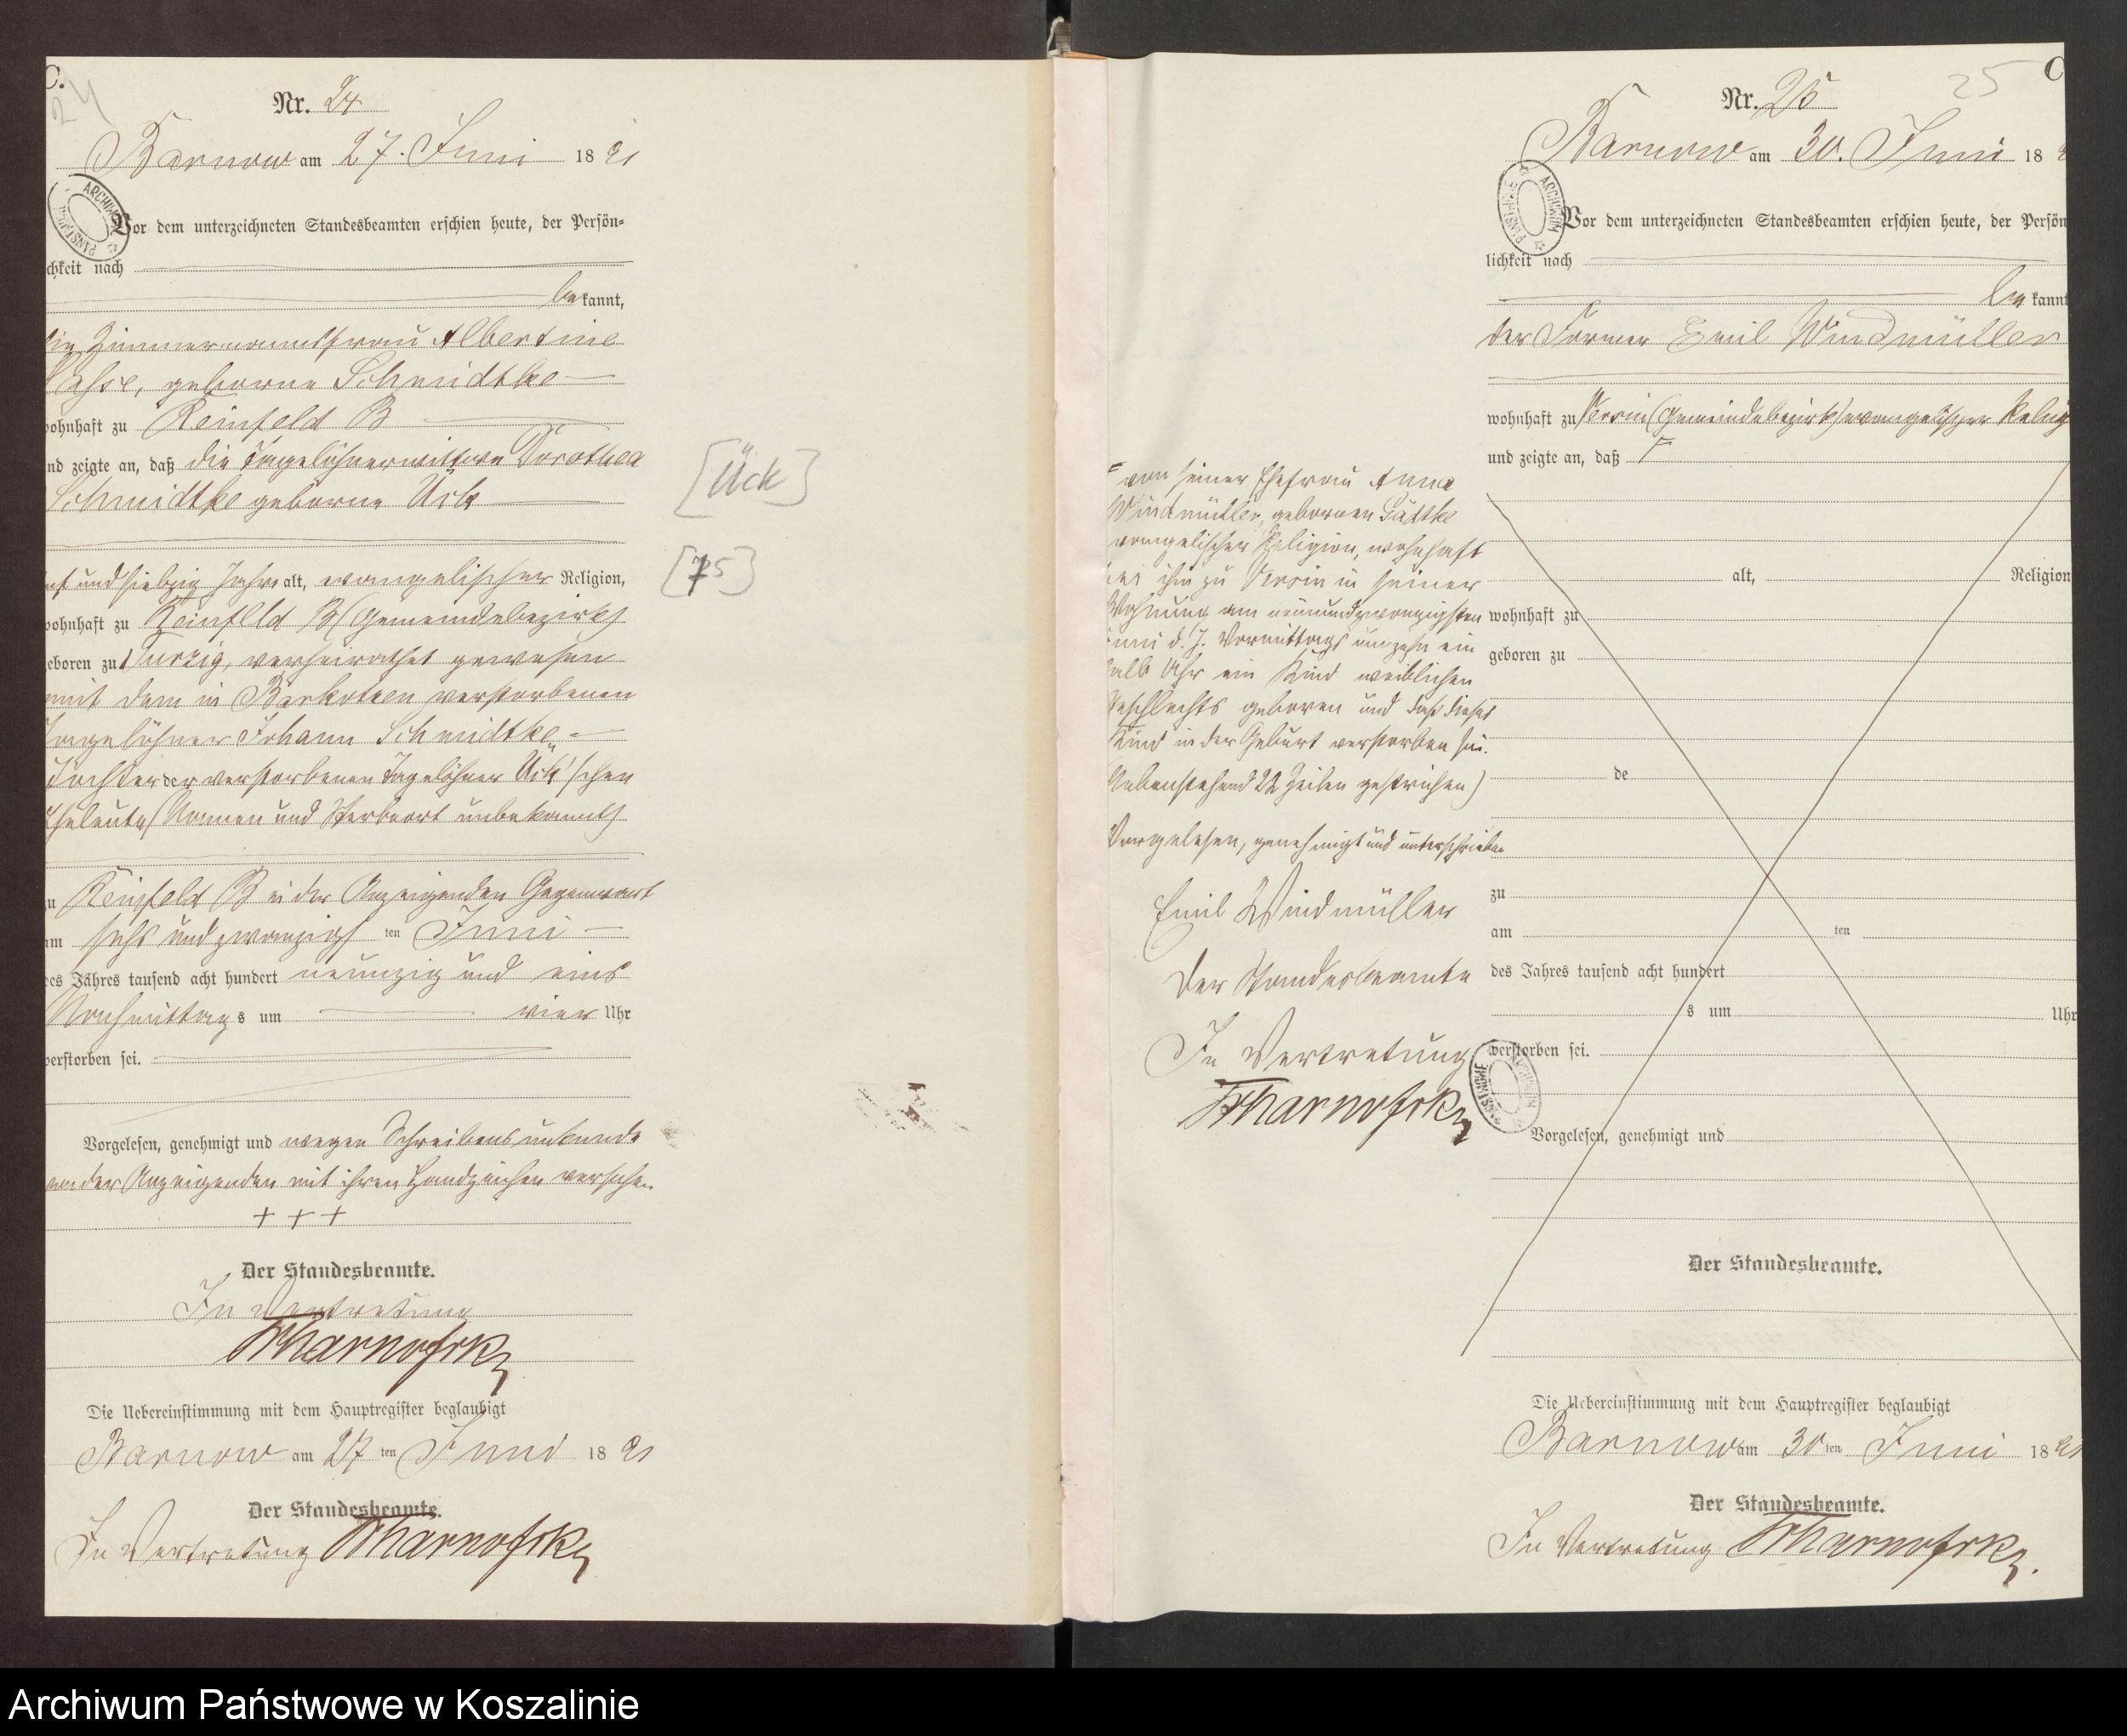 C.
24
Nr. 24
Barnow am 27. Juni 1891
ARCHIWUM PAŃSTWOWE
Vor dem unterzeichneten Standesbeamten erschien heute, der Persön-
chkeit nach
bekannt,
die Zimmermannsfrau Albertine
geborne Schmidtke
wohnhaft zu Reinfeld B
nd zeigte an, daß die Tagelöhnerwittwe Dorothea
Schmidtke geborne Ück
[Ück]
nf und siebzig Jahre alt, evangelischer Religion,
[75]
wohnhaft zu Reinfeld B (Gemeindebezirk)
eboren zu Turzig, verheirathet gewesen
mit dem in Barkotzen verstorbenen
Tagelöhner Johann Schmidtke
Tochter der verstorbenen Tagelöhner Ück'schen
Eheleute (Namen und Sterbeort unbekannt)
zu Reinfeld B in der Anzeigenden Gegenwart
am sechs und zwanzigsten Juni
des Jahres tausend acht hundert neunzig und eins
Nachmittags um vier Uhr
verstorben sei.
Vorgelesen, genehmigt und wegen Schreibensunkunde
von der Anzeigenden mit ihren Handzeichen versehen.
+ + +
Der Standesbeamte.
In Vertretung
Die Uebereinstimmung mit dem Hauptregister beglaubigt
Barnow am 27ten Juni 1891
Der Standesbeamte.
In Vertretung
C
25
Nr. 25
Barnow am 30. Juni 18
ARCHIWUM PAŃSTWOWE
Vor dem unterzeichneten Standesbeamten erschien heute, der Persön
lichkeit nach
bekannt
der Former Emil Windmüller
wohnhaft zu Versin (Gemeindebezirk) evangelischer Relig
und zeigte an, daß F
F von seiner Ehefrau Anna
Windmüller, gebornen Gädtke
evangelischer Religion, wohnhaft
bei ihm zu Versin in seiner
Wohnung am neunundzwanzigsten
Juni d. J. Vormittags um zehn ein
halb Uhr ein Kind weiblichen
Geschlechts geboren und daß dieses
Kind in der Geburt verstorben sei.
Nebenstehend 22 Zeilen gestrichen)
Vorgelesen, genehmigt und unterschrieben
Emil Windmüller
Der Standesbeamte
In Vertretung
alt, Religion
wohnhaft zu
geboren zu
de
zu
am ten
des Jahres tausend acht hundert
s um Uhr
verstorben sei.
ARCHIWUM PAŃSTWOWE
Vorgelesen, genehmigt und
Der Standesbeamte.
Die Uebereinstimmung mit dem Hauptregister beglaubigt
Barnow am 30ten Juni 1891
Der Standesbeamte.
In Vertretung
Archiwum Państwowe w Koszalinie